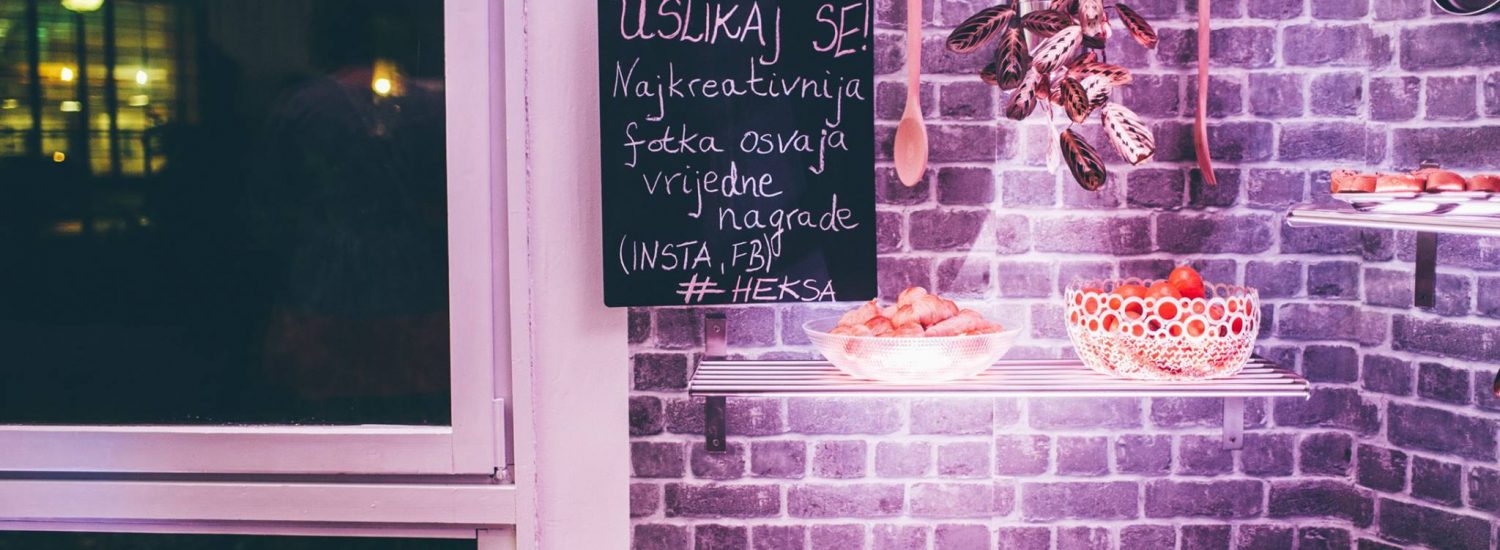 USLIKAJ SE!
Najkreativnija
fotka osvaja
vrijedne
nagrade
(INSTA, FB)
# HEKSA